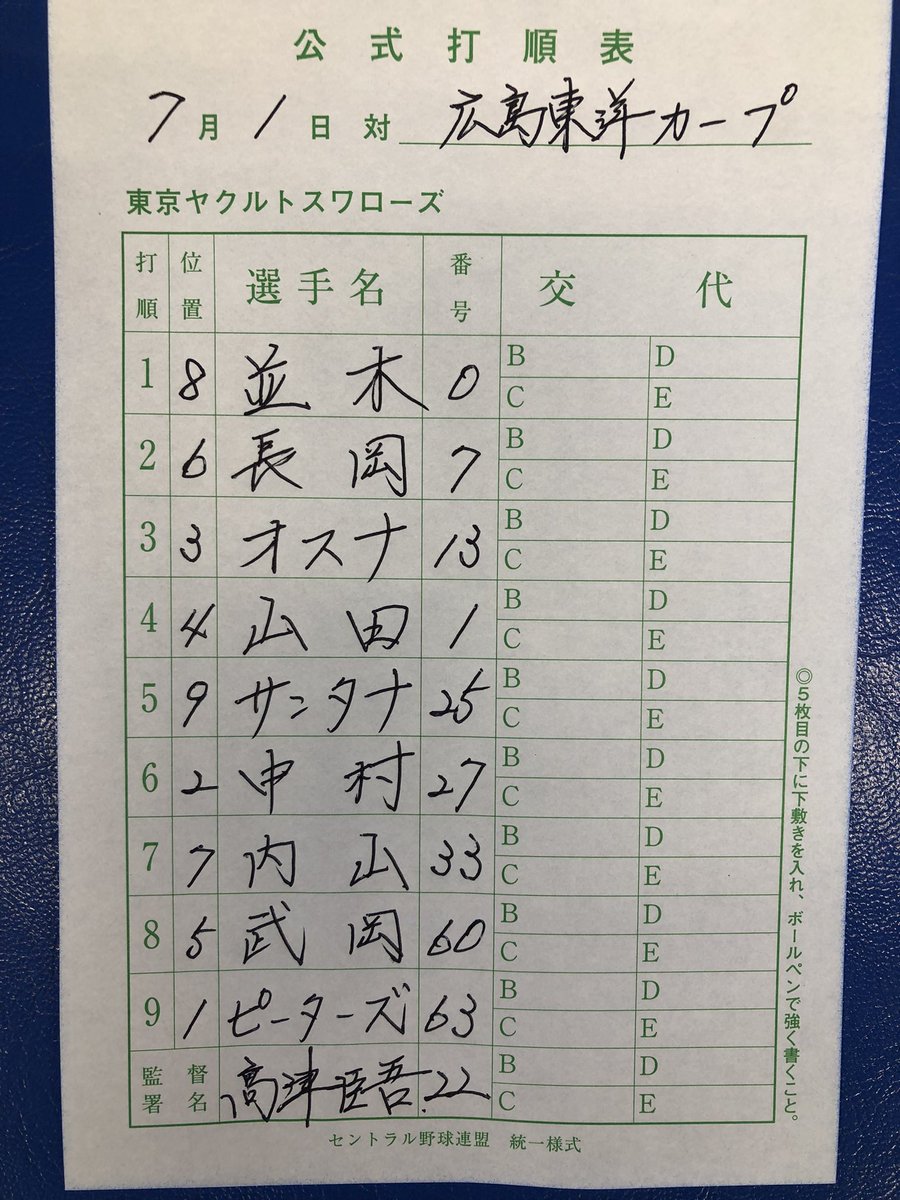 公式打順表
7月1日対 広島東洋カープ
東京ヤクルトスワローズ
打順 位置 選手名 番号 交代
1 8 並木 0 B D
C E
2 6 長岡 7 B D
C E
3 3 オスナ 13 B D
C E
4 4 山田 1 B D
C E
5 9 サンタナ 25 B D
C E
6 2 中村 27 B D
C E
7 7 内山 33 B D
C E
8 5 武岡 60 B D
C E
9 1 ピーターズ 63 B D
C E
監督署名 高津臣吾 22 B D
C E
セントラル野球連盟 統一様式
◎5枚目の下に下敷きを入れ、ボールペンで強く書くこと。